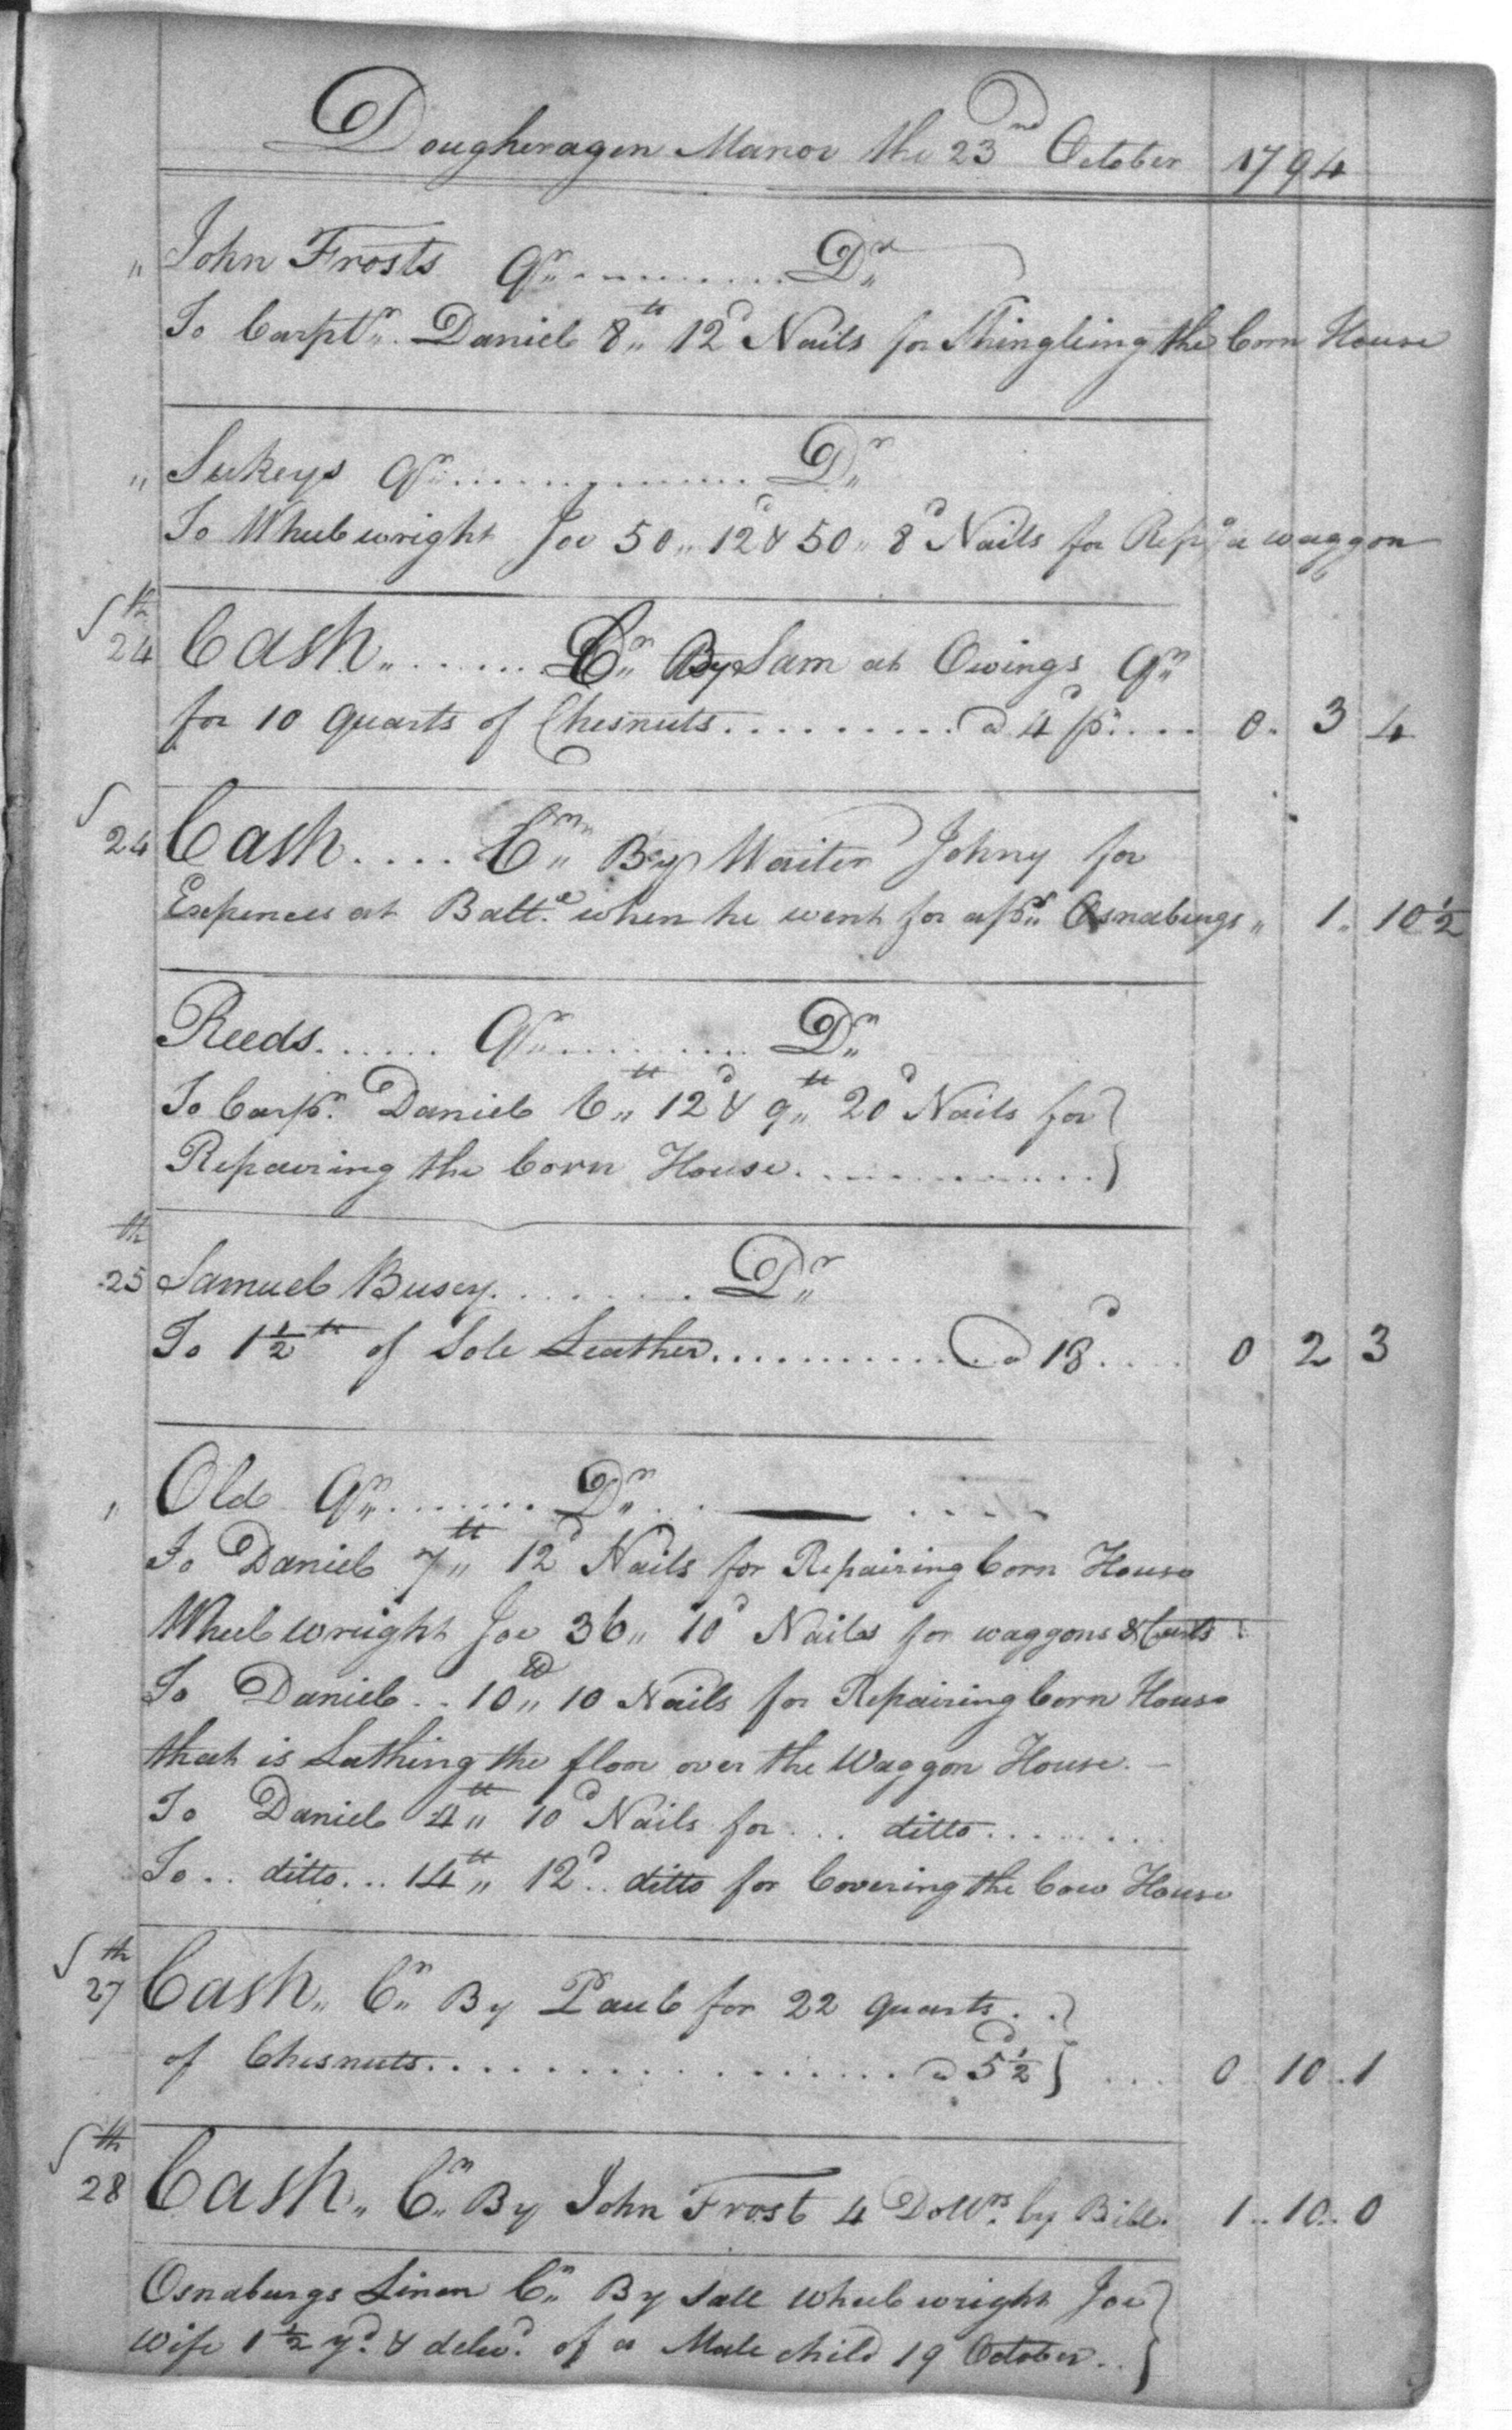 Dougheragen Manor the 23nd October 1794
" John Frosts Qr" ......... Dr"
To Carptr". Daniel 8lb" 12d Nails for Shingleing the Corn House
" Sukeys Qr" ............... Dr"
To Wheelwright Joe 50" 12d & 50" 8d Nails for Repg a waggon
th
24 Cash" ...... Cr" By Sam at Owings Qr"
for 10 quarts of Chesnuts .......... @ 4d p. .... 0. 3 4
24 Cash .... Cr" By Waiter Johny for
Expences at Balt.e when he went for a ps" Osnabengs " 1. 10 1/2
Reeds ...... Qr" ......... Dr"
To Carp.r Daniel 6lb" 12d & 9lb" 20d Nails for }
Repairing the Corn House ............. }
th
25 Samuel Busey ........ Dr"
To 1 1/2 lb of Sole Leather ............ @ 18d .... 0 2 3
" Old Qr" ....... Dr" .. — .....
To Daniel 7lb" 12d Nails for Repairing Corn House
Wheelwreight Joe 36" 10d Nails for waggons & Carts
To Daniel .. 10lb" 10 Nails for Repairing Corn House
that is Lathing the floor over the Waggon House. –
To Daniel 4lb" 10d Nails for ... ditto ........
To .. ditto ... 14lb" 12d .. ditto for Covering the Cow House
th
27 Cash" Cr" By Paul for 22 quarts .. }
of Chesnuts ................. @ 5d 1/2 } ... 0 10 .. 1
th
28 Cash" Cr" By John Frost 4 Dollrs. by Bill. 1 .. 10 .. 0
Osnaburgs Linen Cr" By Sall Wheelwright Joe }
wife 1 1/2 yd. & deliv.d of a Male child 19 October .. }